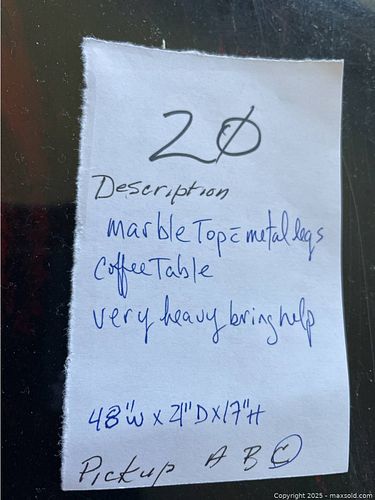 20
Description
marble Top = metal legs
Coffee Table
very heavy bring help
48"W x 21"D x 17"H
Pickup A B C
Copyright 2025 - maxsold.com